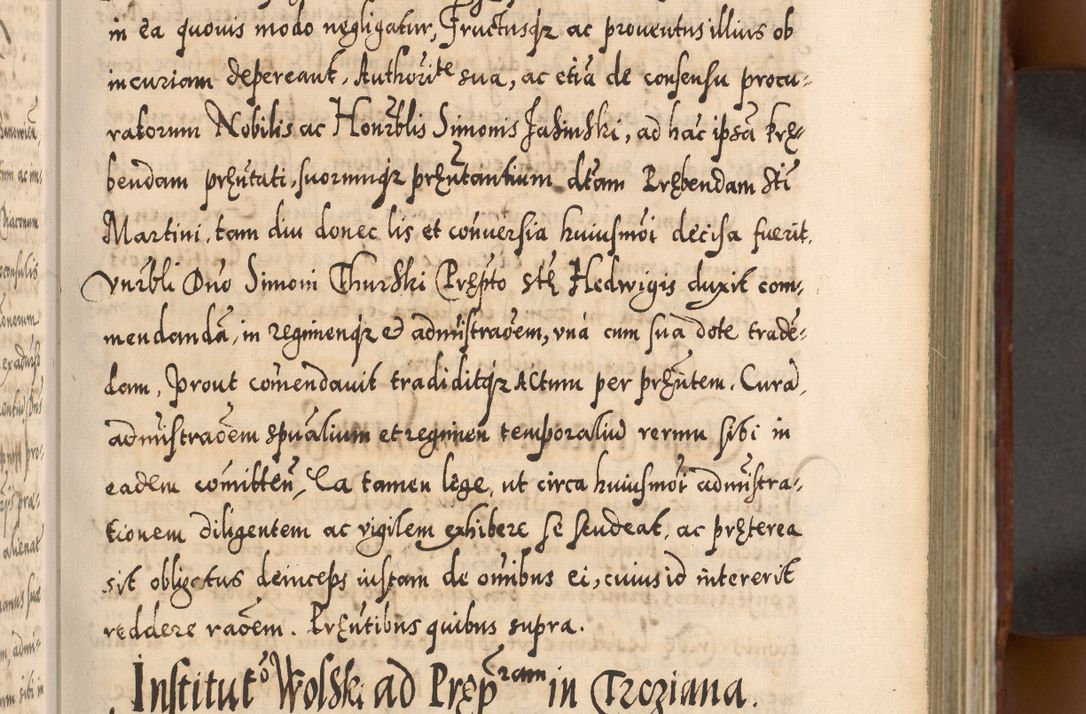 in ea quouis modo negligatur, Fructusqȝ ac prouentus illius ob
incuriam depereant, Authorite sua, ac etiā de consensu procu-
ratorum Nobilis ac Honrblis Simonis Jasinski, ad hāc ipsā Prę-
bendam pręntati, suorumqȝ pręntantium dtam Prębendam Sti
Martini, tam diu donec lis et conuersia huiusmoi decisa fuerit,
Vnrbli Dno Simoni Thurski Prępto Stę Hedwigis duxit com-
mendandā, in regimenqȝ et admistraoem, vna cum sua dote trade-
dam, prout comendauit tradiditqȝ Actum per pręntem. Curā,
admistraoem spualium et regimen temporaliū rerum sibi in
eadem comitten, Ea tamen lege, ut circa huiusmoi admistra-
tionem diligentem ac vigilem exhibere se studeat, ac pręterea
sit obligatus deinceps iustam de omibus ei, cuius id intererit
reddere raoem. Pręntibus quibus supra.
Institut° Wolski ad Prępram in Trcziana.